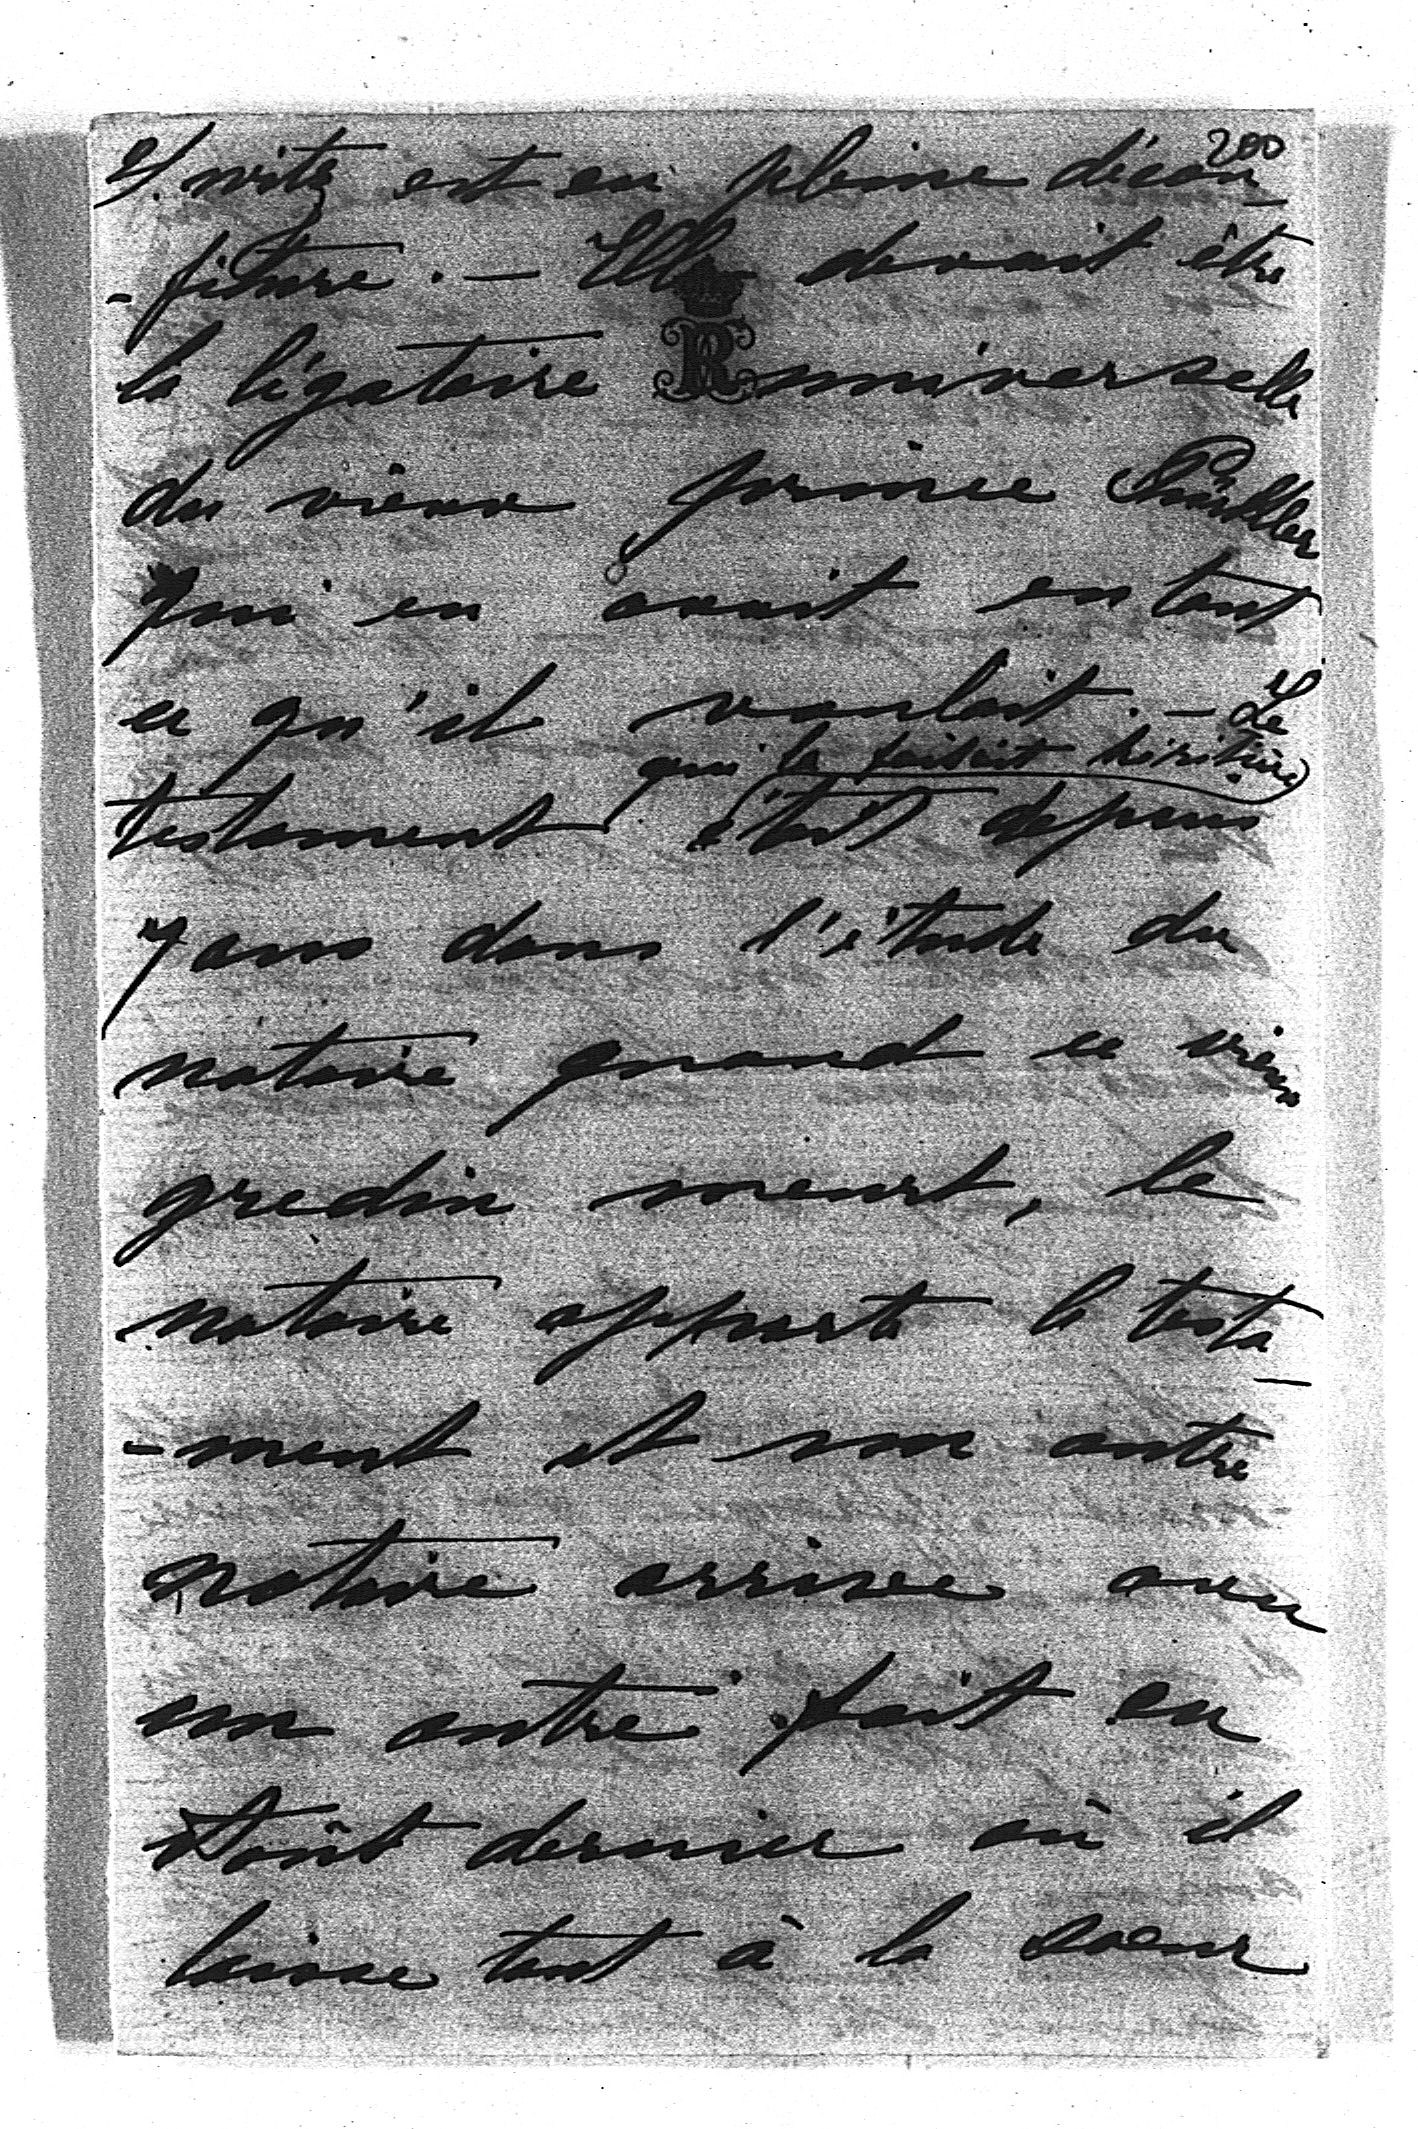 200
est en pleine décon-
-fiture. — Elle devait être
la légataire universelle
du vieux prince
qui en avait en tout
ce qu'il voulait. — Le
qui la faisait héritière
testament était depuis
7 ans dans l'étude du
notaire quand ce vieux
gredin meurt, le
notaire apporte le testa-
-ment et un autre
notaire arrive avec
un autre fait en
Août dernier où il
laisse tout à la sœur